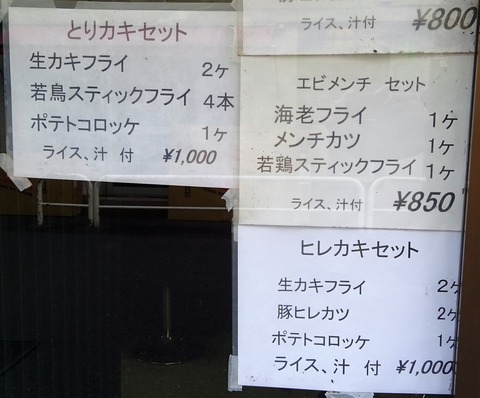 とりカキセット
生カキフライ 2ケ
若鳥スティックフライ 4本
ポテトコロッケ 1ケ
ライス、汁 付 ¥1,000
ライス、汁付 ¥800
エビメンチ セット
海老フライ 1ヶ
メンチカツ 1ヶ
若鶏スティックフライ 1ヶ
ライス、汁付 ¥850
ヒレカキセット
生カキフライ 2ヶ
豚ヒレカツ 2ヶ
ポテトコロッケ 1ヶ
ライス、汁 付 ¥1,000